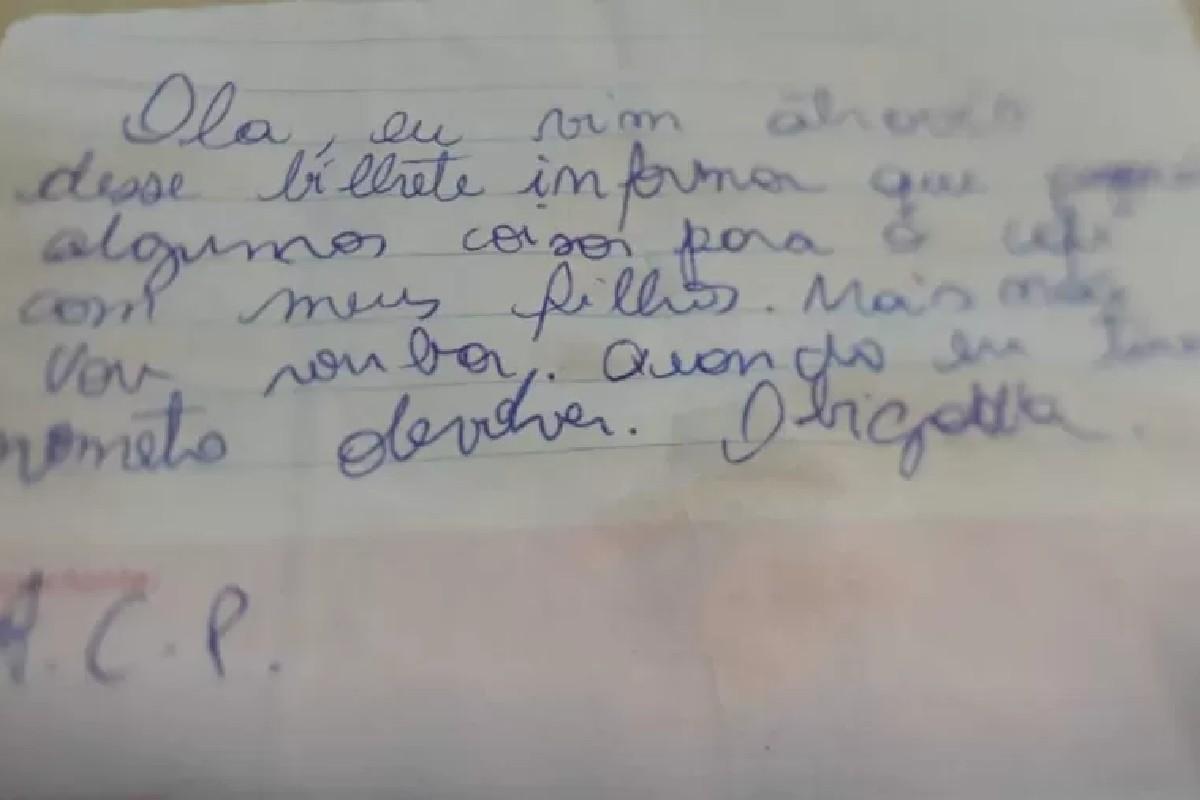 Ola, eu vim atraves
desse bilhete informar que
algumas coisas para o
com meus filhos. Mais não
vou roubar. Quando eu
prometo devolver. Obrigada.
A.C.P.